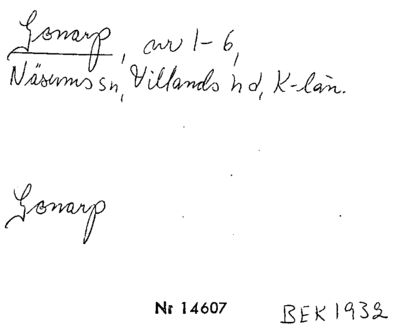 Gonarp, avr 1-6,
Näsums sn, Villands hd, K-län.
Gonarp
Nr 14607 BEK 1932